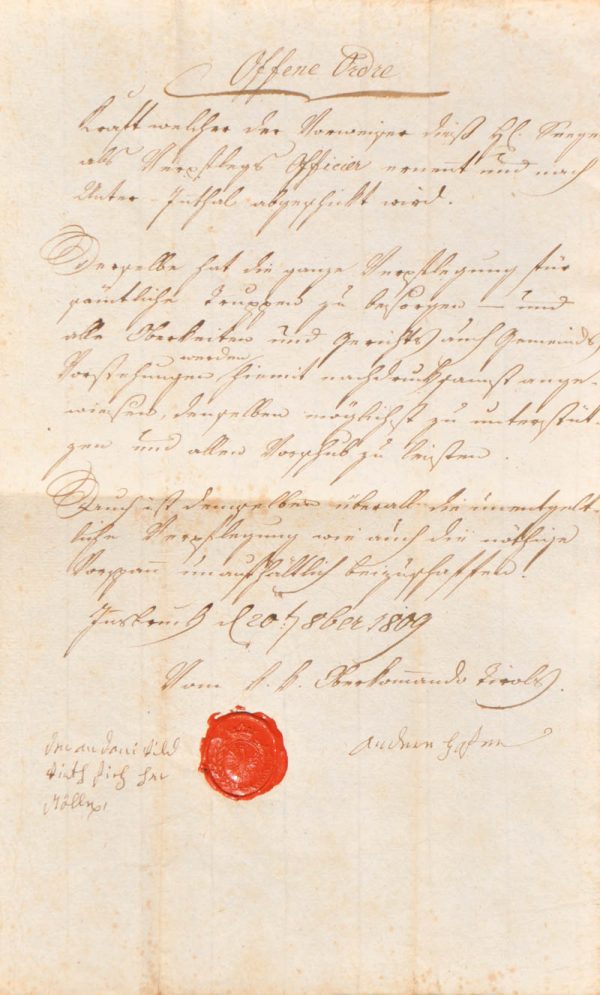 Offene Ordre
Kraft welcher der Vorweiser dieß H:
als Verpflegs Officier ernennt und nach
Unter Innthal abgeschickt wird.
Derselbe hat die ganze Verpflegung für
sämtliche Truppen zu besorgen — und
alle Oberkeiten und Gerichts auch Gemeinds
Vorstehungen werden hiemit nachdruksamst ange-
wiesen, denselben möglichst zu unterstüt-
zen und allen Vorschub zu leisten.
Auch ist demselben überall die unentgelt-
liche Verpflegung wie auch die nöthige
Vorspann unaufhältlich beizuschaffen.
Innsbruck d 20t 8ber 1809
Vom k. k. Oberkommando Tirols.
andere hofer